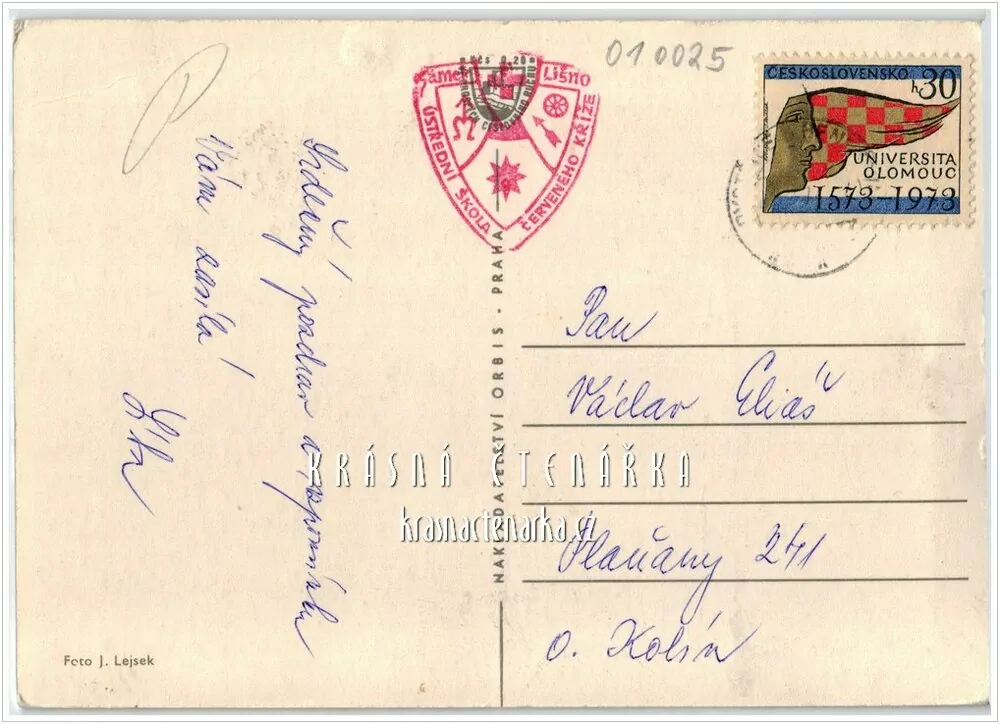 010025
Kčs 0.20
Zámek Líšno
ÚSTŘEDNÍ ŠKOLA
ČERVENÉHO KŘÍŽE
ČESKOSLOVENSKO
h 30
UNIVERSITA
OLOMOUC
1573-1973
Srdečný pozdrav a vzpomínku
Vám zasílá
NAKLADATELSTVÍ ORBIS - PRAHA
Pan
Václav Eliáš
Plaňany 241
o. Kolín
KRÁSNÁ ČTENÁŘKA
krasnactenarka.cz
Foto J. Lejsek